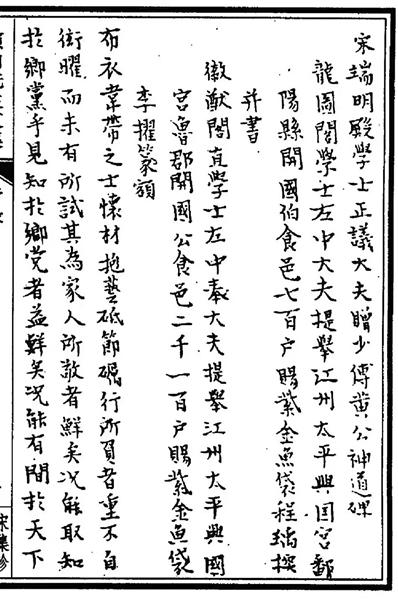 宋端明殿學士正議大夫贈少傅黃公神道碑
龍圖閣學士左中大夫提舉江州太平興国宮鄱
陽縣開國伯食邑七百户賜紫金魚袋程瑀撰
并書
徽猷閣直學士左中奉大夫提舉江州太平興國
宮魯郡開國公食邑二千一百户賜紫金魚袋
李擢篆額
布衣韋帶之士懷材抱藝砥節礪行所負者重不自
衒曜而未有所試其為家人所敬者鮮矣况能取知
於鄉黨乎見知於鄉党者益鮮矣况能有聞於天下